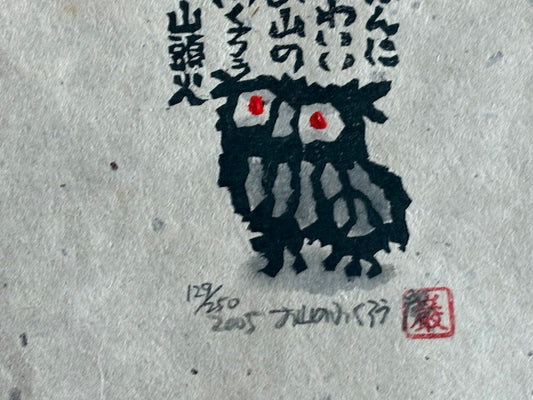 んに
わいい
山の
くろう
山頭火
129/250
2005 お山のふくろう
巖